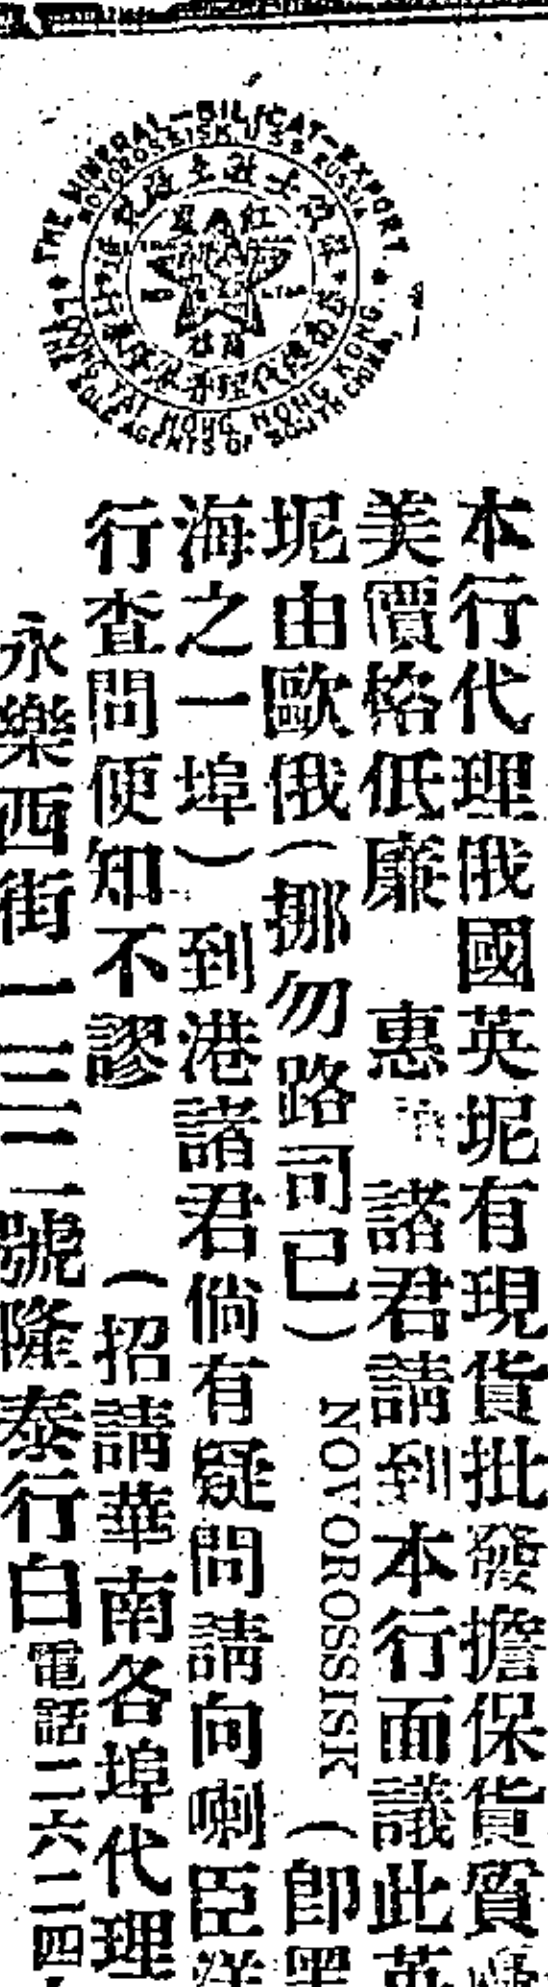 THE MINERAL-SILICAT-EXPORT
NOVOROSSISK U.S.S. RUSSIA
紅星
LUNG TAI HONG, HONG KONG.
THE SOLE AGENTS OF SOUTH CHINA,
本行代理俄國英坭有現貨批發擔保貨質
美價格低廉 惠 諸君請到本行面議此英
坭由歐俄(挪勿路司已) NOVOROSSISK (即黑
海之一埠) 到港諸君倘有疑問請向喇臣洋
行查問便知不謬 (招請華南各埠代理
號隆泰行白 電話二六二四
永樂西街